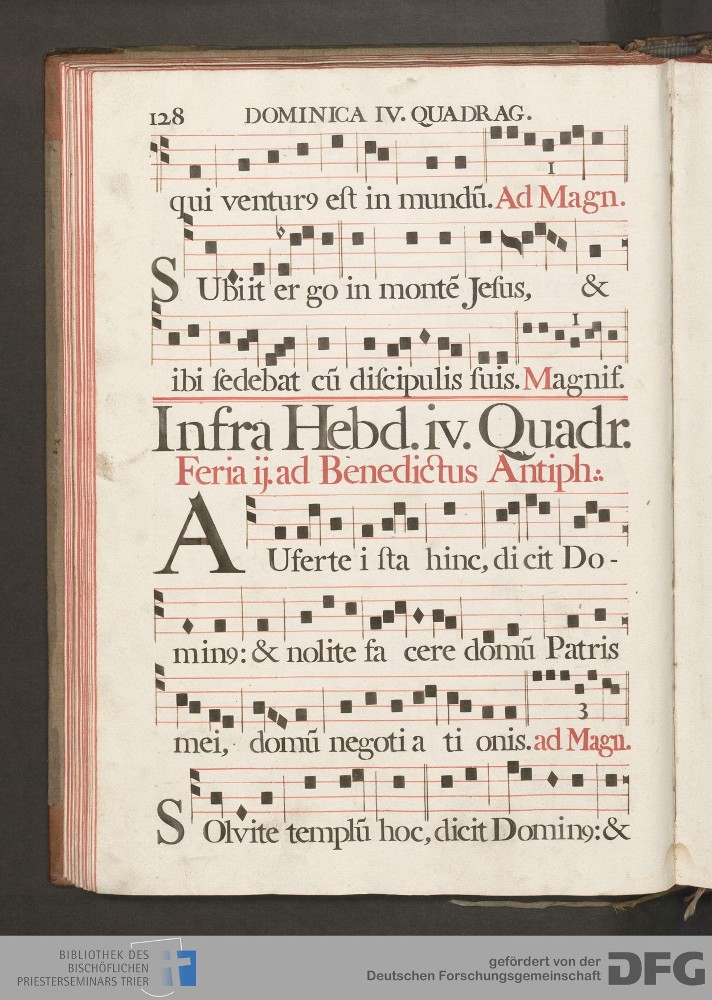 128 DOMINICA IV. QUADRAG.
1
qui ventur9 est in mundū. Ad Magn.
SUbiit er go in montē Jesus, &
1
ibi sedebat cū discipulis suis. Magnif.
Infra Hebd. iv. Quadr.
Feria ij. ad Benedictus Antiph.:
AUferte i sta hinc, di cit Do-
min9: & nolite fa cere domū Patris
3
mei, domū negoti a ti onis. ad Magn.
SOlvite templū hoc, dicit Domin9: &
BIBLIOTHEK DES
BISCHÖFLICHEN
PRIESTERSEMINARS TRIER
gefördert von der
Deutschen Forschungsgemeinschaft DFG